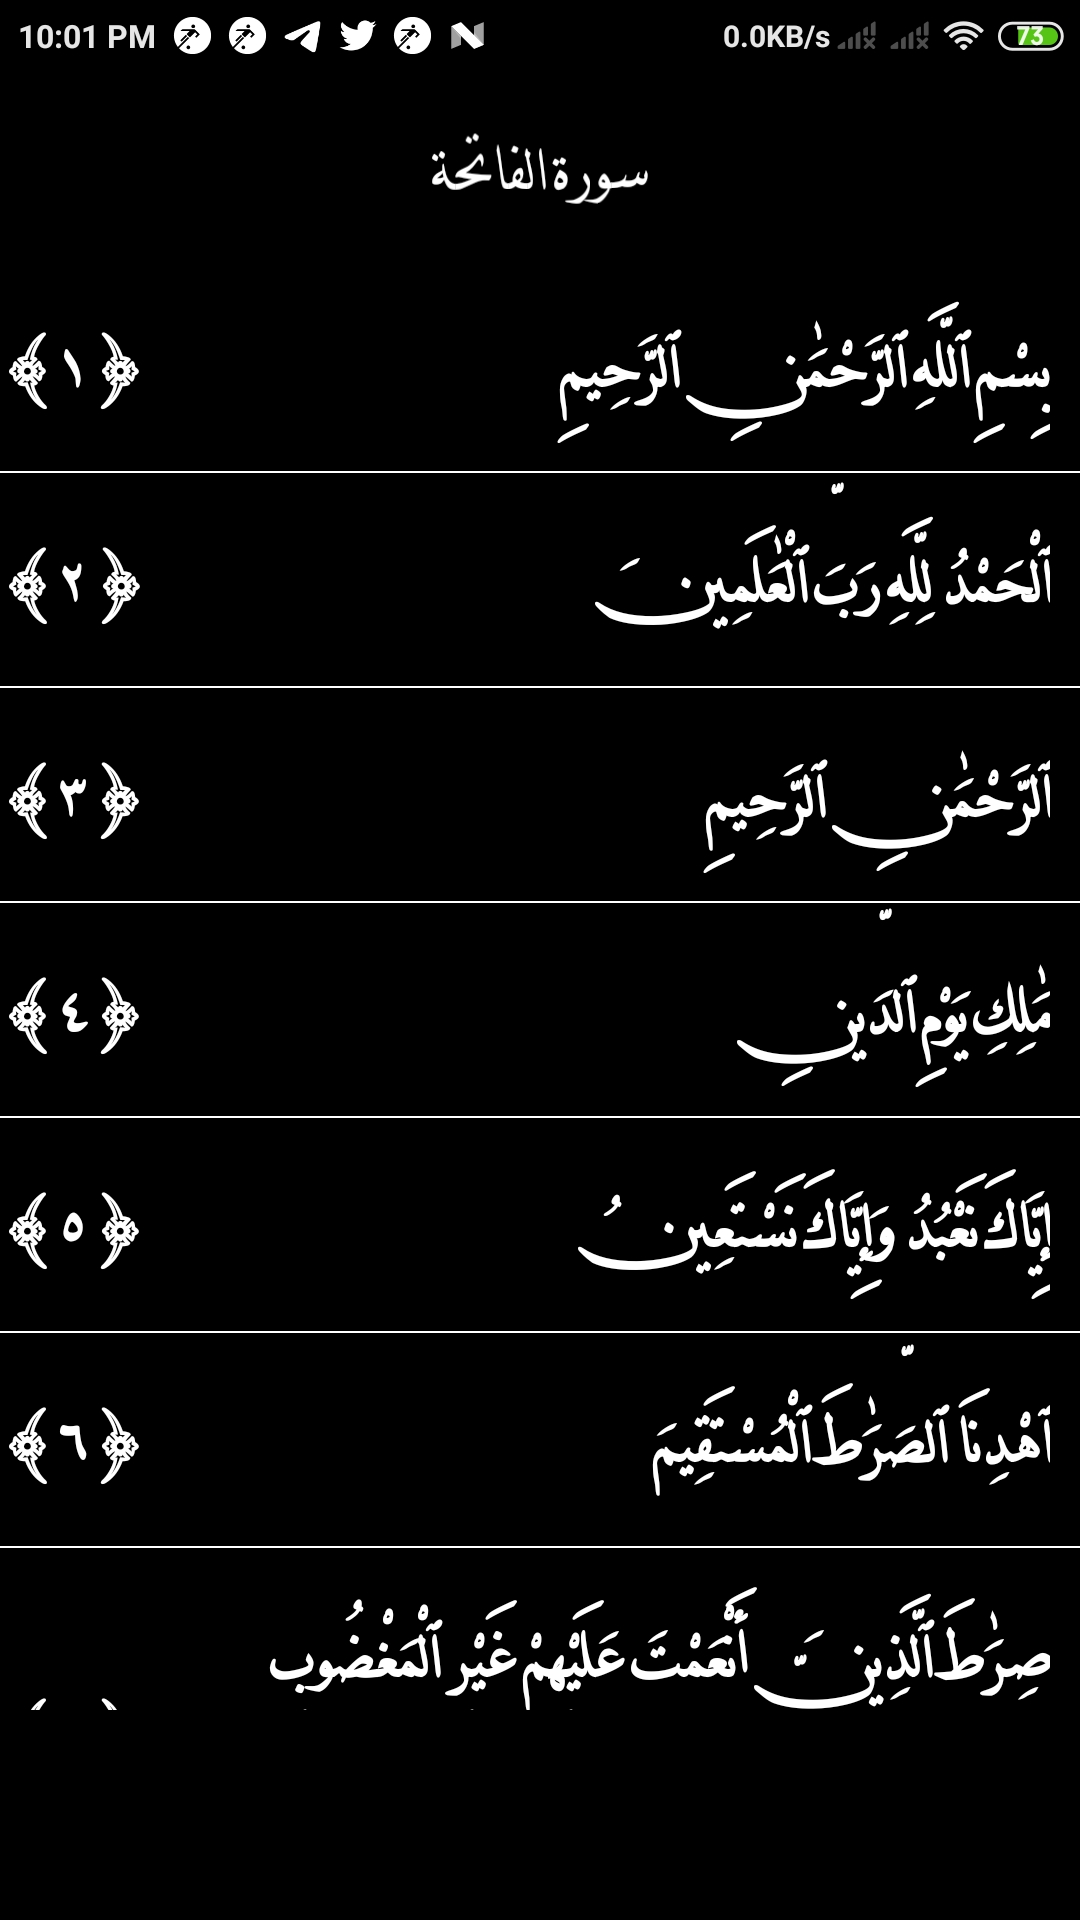 10:01 PM 0.0KB/s 73
سورة الفاتحة
بِسْمِ ٱللَّهِ ٱلرَّحْمَٰنِ ٱلرَّحِيمِ ﴿١﴾
ٱلْحَمْدُ لِلَّهِ رَبِّ ٱلْعَٰلَمِينَ ﴿٢﴾
ٱلرَّحْمَٰنِ ٱلرَّحِيمِ ﴿٣﴾
مَٰلِكِ يَوْمِ ٱلدِّينِ ﴿٤﴾
إِيَّاكَ نَعْبُدُ وَإِيَّاكَ نَسْتَعِينُ ﴿٥﴾
ٱهْدِنَا ٱلصِّرَٰطَ ٱلْمُسْتَقِيمَ ﴿٦﴾
صِرَٰطَ ٱلَّذِينَ أَنْعَمْتَ عَلَيْهِمْ غَيْرِ ٱلْمَغْضُوبِ